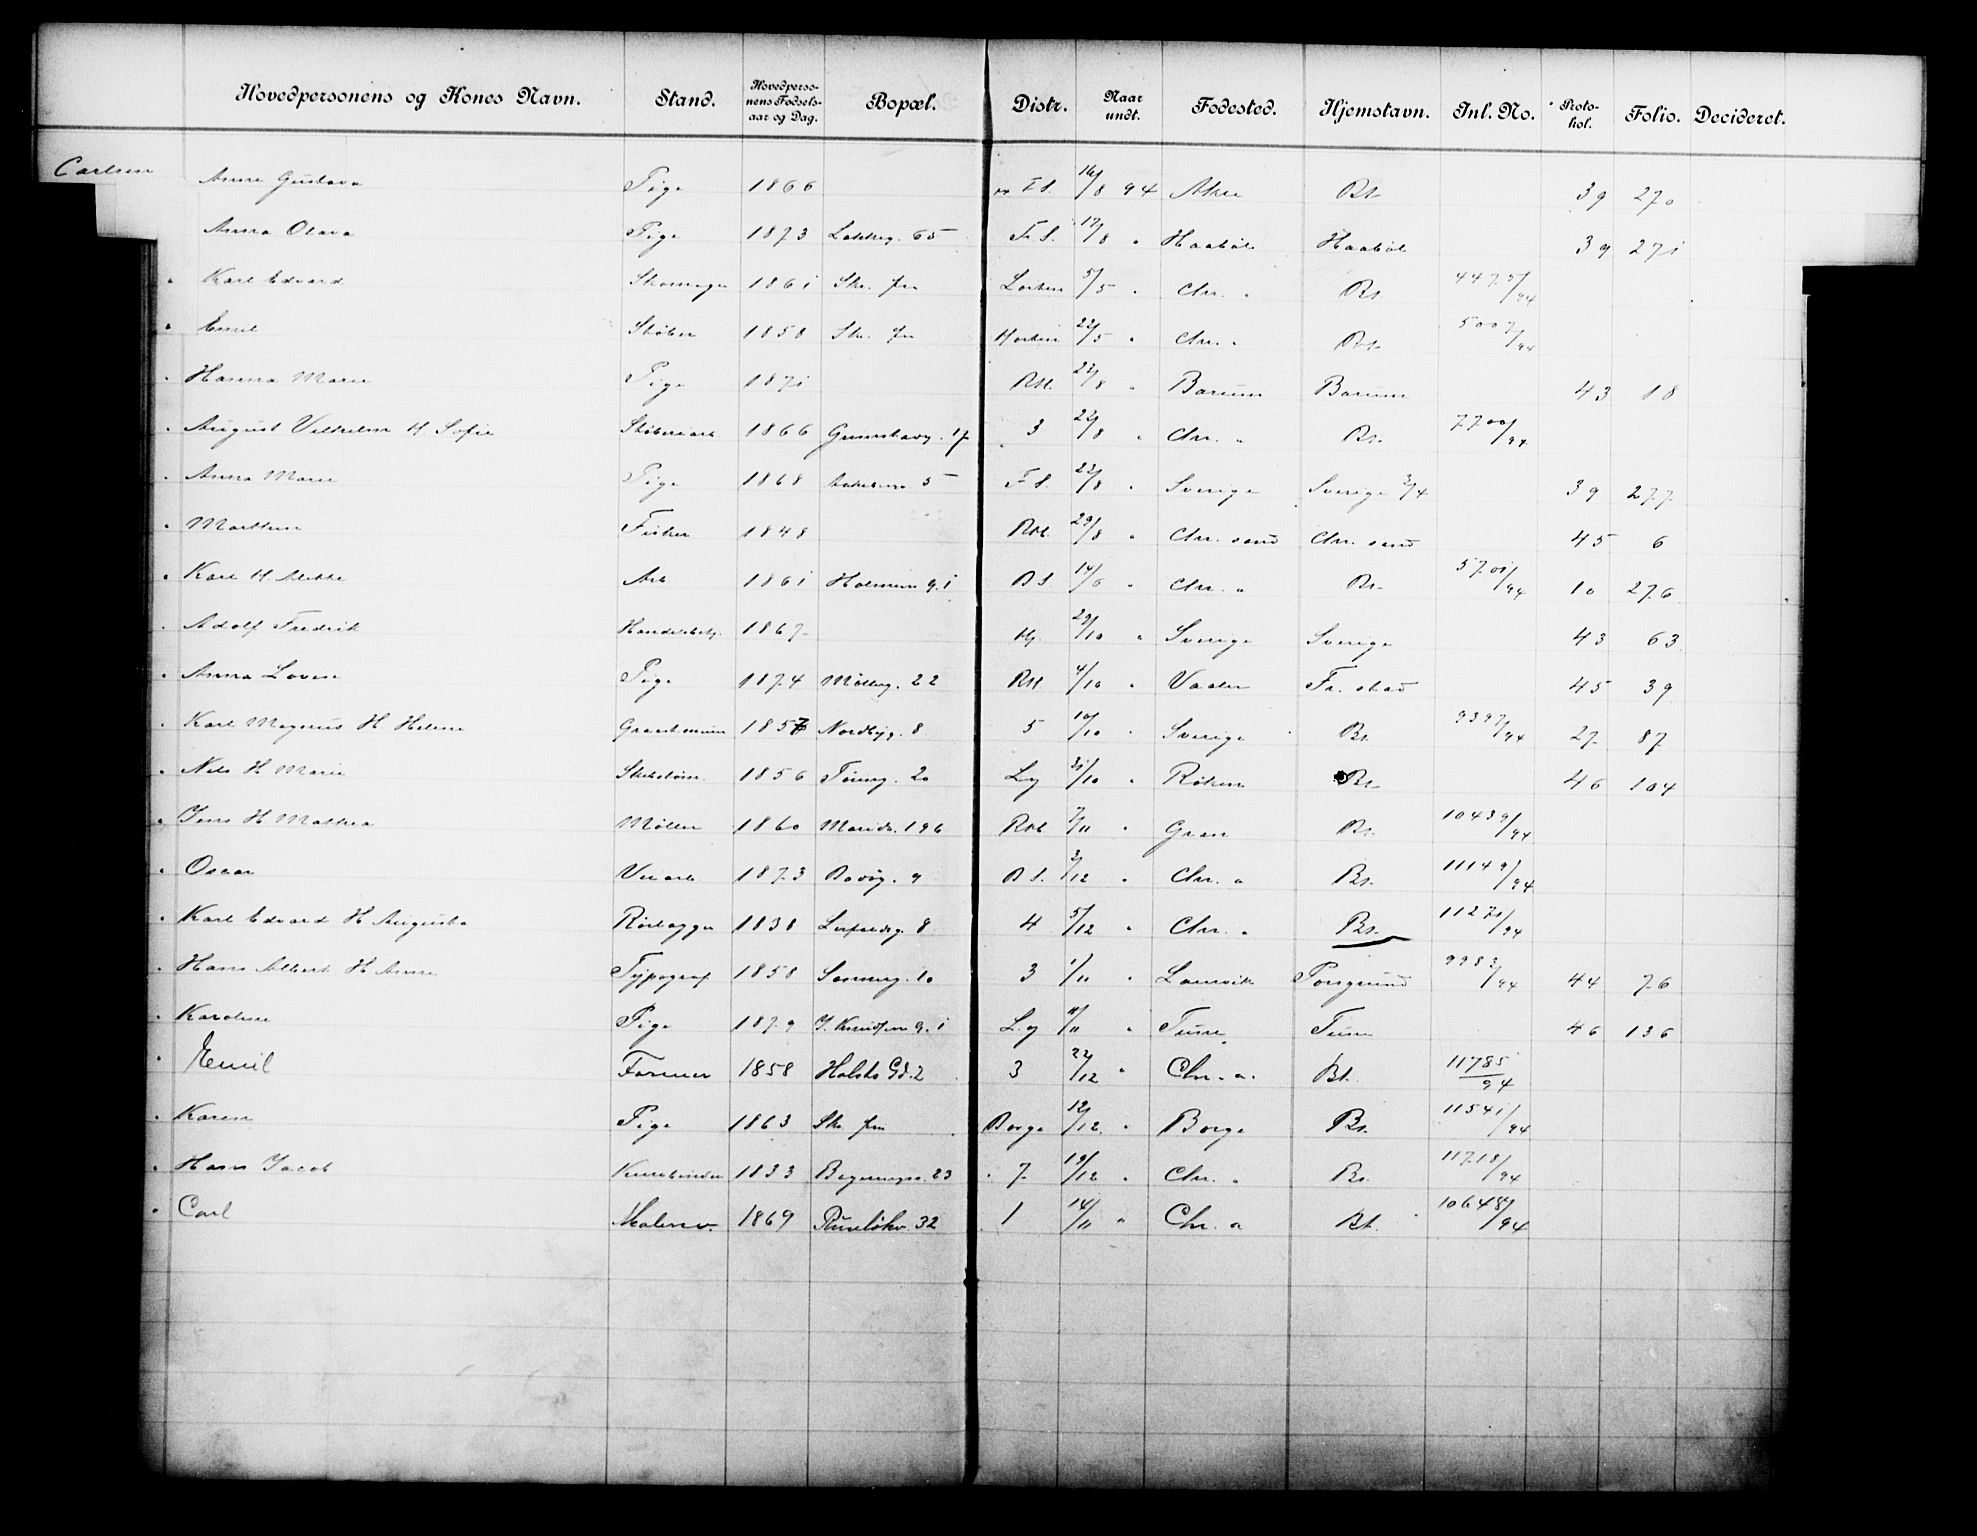 Hovedpersonens og Kones Navn. Stand. Hovedpersonens Fødselsaar og Dag. Bopæl. Distr. Naar undt. Fødested. Hjemstavn. Inl. No. Protokol. Folio. Decideret.
Carlsen Anne Gustava Pige 1866 F S. 16/8 94 Aker Bt. 39 270
Anna Olava Pige 1873 65 F. S. 17/8 " Haabøl Haabøl 39 271
" Karl Edvard Skomager 1861 Skr. fra 5/5 " Chr. a Bt. 4475/94
" Emil Støber 1858 Skr. fra Horten 22/5 " Chr. a Bt. 5007/94
" Hanna Marie Pige 1871 RH. 22/8 " Bærum Bærum 43 18
" August Vilhelm H Sofie Støberiarb 1866 17 3 22/8 " Chr. a Bt. 7700/94
" Anna Marie Pige 1868 5 F S. 22/8 " Sverige Sverige 39 277
" Fisker 1848 RH. 29/8 " Chr. sand Chr. sand 45 6
" Karl H Arb 1861 Holmens g. 1 B S. 14/6 " Chr. a Bt. 5701/94 10 276
" Adolf Fredrik Handelsbetj. 1867 29/10 " Sverige Sverige 43 63
" Anna Lovise Pige 1874 Møllerg. 22 RH 4/10 " Vaaler Fr. stad 45 39
" Karl Magnus H. Helene 1857 Nordbyg. 8 5 10/10 " Sverige Bt. 9397/94 27 87
" Nils H Marie 1856 20 Lg 31/10 " Røken Bt. 46 104
" Jens H Mathea Møller 1860 Maridv. 196 RH 7/11 " Gran Bt. 10439/94
" Oscar 1873 9 B S. 3/12 " Chr. a Bt. 11149/94
" Karl Edvard H Augusta Rørlægger 1838 8 4 5/12 " Chr. a Bt. 11271/94
" Hans Albert H Anne Typograf 1858 10 3 1/11 " Laurvik Porsgrund 9982/94 44 76
" Karoline Pige 1879 J. Knudsens g. 1 L. g 11/11 " Tune Tune 46 136
" Emil Former 1858 Holsts Gd. 2 3 22/12 " Chr. a. Bt. 11785/94
" Karen Pige 1863 Skr. fra Borge 12/12 " Borge Bt. 11541/94
" Hans Jacob 1833 23 7 19/12 " Chr. a Bt. 11718/94
" Carl Malersv. 1869 Ruseløkv. 32 1 14/11 " Chr. a Bt. 10648/94